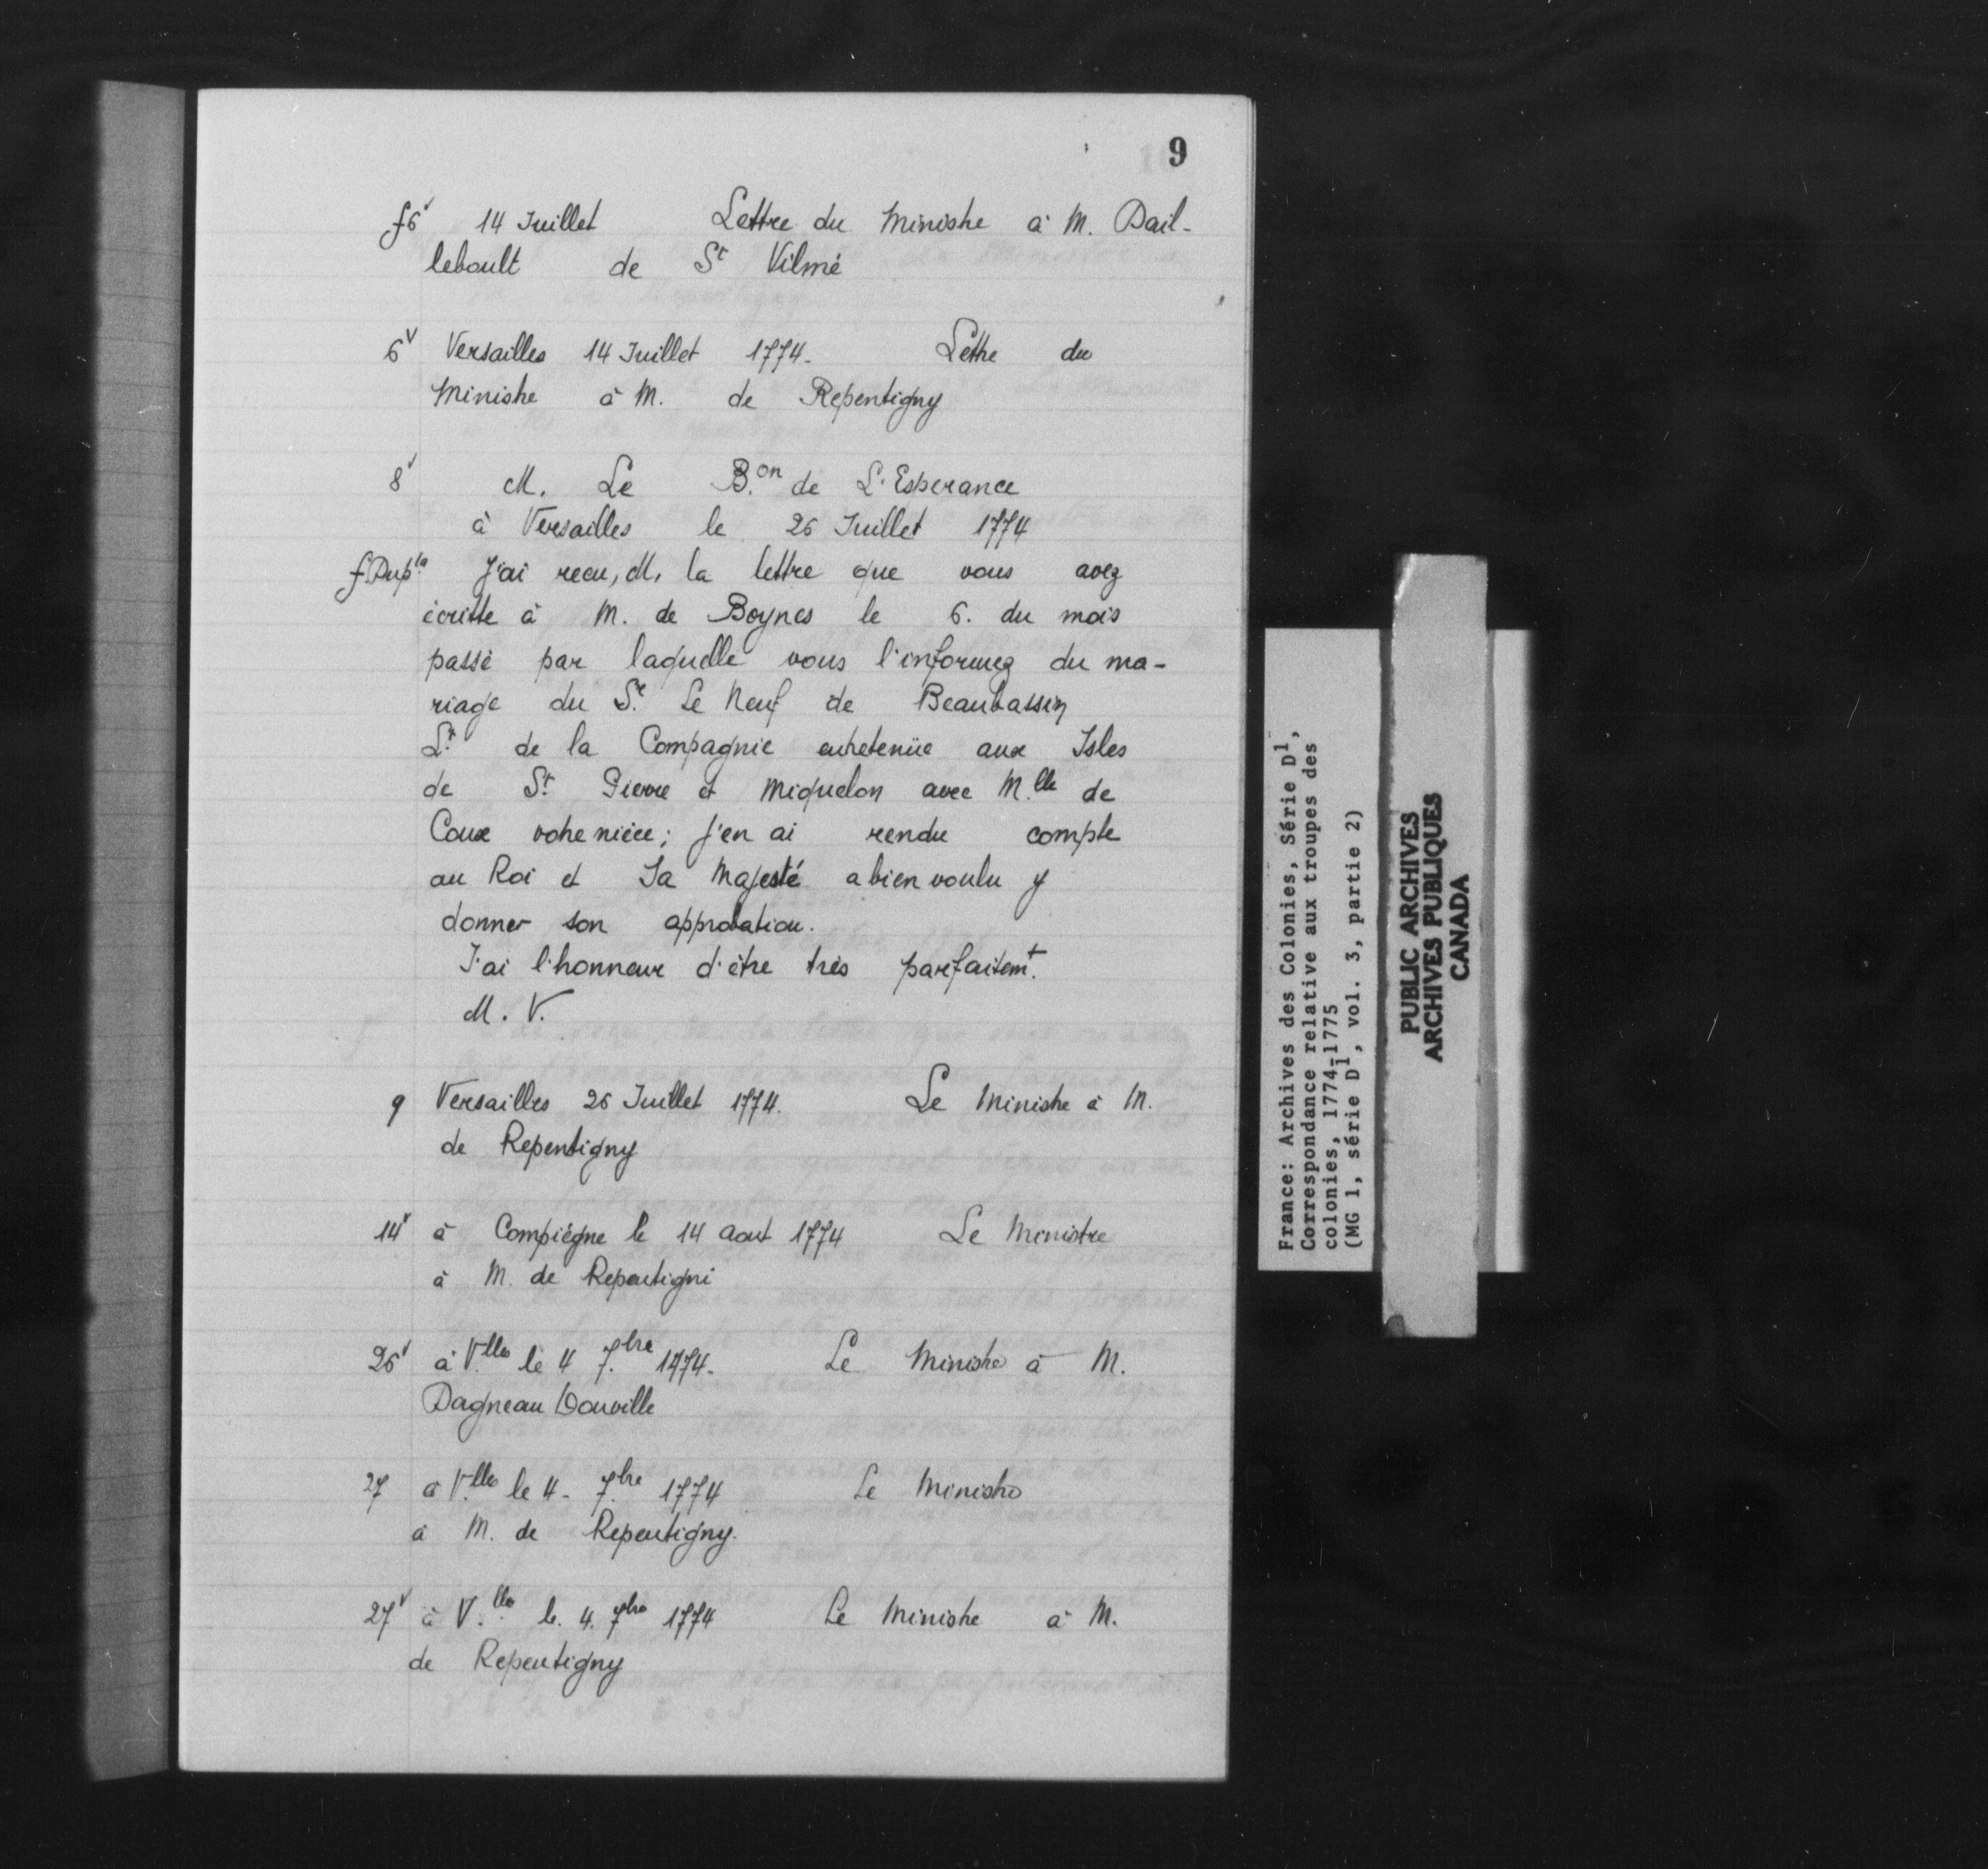 9
f6v 14 Juillet Lettre du Ministre à M. Dail-
leboult de St Vilmé
6v Versailles 14 Juillet 1774. Lettre du
Ministre à M. de Repentigny
8v M. Le B.on de L'Esperance
à Versailles le 26 Juillet 1774
J'ai recu, M. la lettre que vous avez
écritte à M. de Boynes le 6. du mois
passé par laquelle vous l'informez du ma-
riage du Sr. Le Neuf de Beaubassin
Lt. de la Compagnie entretenüe aux Isles
de St. Pierre et Miquelon avec M.lle de
Coux votre nièce; j'en ai rendu compte
au Roi et Sa Majesté a bien voulu y
donner son approbation.
J'ai l'honneur d'être très parfaitemt.
M. V.
9 Versailles 26 Juillet 1774. Le Ministre à M.
de Repentigny
14v à Compiégne le 14 aout 1774 Le Ministre
à M. de Repentigni
26v à V.lles le 4 7.bre 1774. Le Ministre à M.
Dagneau Douville
27 à V.lles le 4. 7.bre 1774 Le Ministre
à M. de Repentigny.
27v à V.lles le. 4. 7bre 1774 Le Ministre à M.
de Repentigny
France: Archives des Colonies, Série D1,
Correspondance relative aux troupes des
colonies, 1774-1775
(MG 1, série D1, vol. 3, partie 2)
PUBLIC ARCHIVES
ARCHIVES PUBLIQUES
CANADA